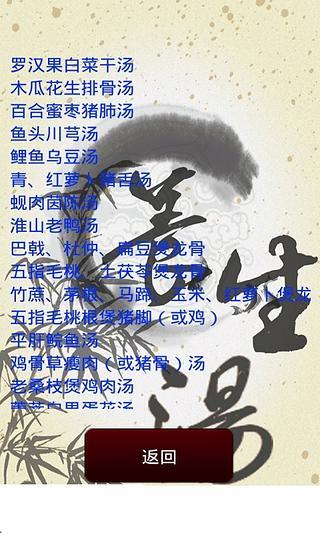 罗汉果白菜干汤
木瓜花生排骨汤
百合蜜枣猪肺汤
鱼头川芎汤
鲤鱼乌豆汤
青、红萝卜猪舌汤
蚬肉茵陈汤
淮山老鸭汤
巴戟、杜仲、扁豆煲龙骨
五指毛桃、土茯苓煲龙骨
竹蔗、茅根、马蹄、玉米、红萝卜煲龙
五指毛桃根煲猪脚（或鸡）
平肝鲩鱼汤
鸡骨草瘦肉（或猪骨）汤
老桑枝煲鸡肉汤
养生汤
返回